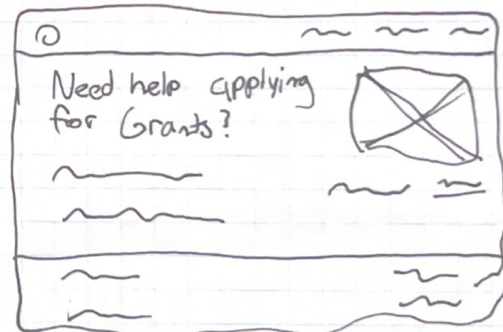 Need help applying
for Grants?